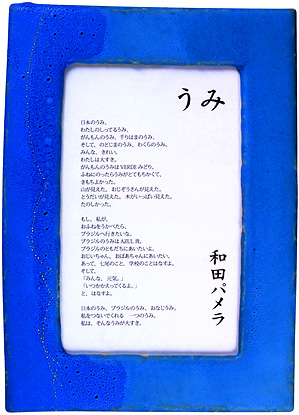 うみ
日本のうみ、
わたしのしってるうみ、
がんもんのうみ、千りはまのうみ、
そして、のとじまのうみ、わくらのうみ、
みんな、きれい。
わたしは大すき。
がんもんのうみはVERDEみどり。
ふねにのったらうみがとてもちかくて、
きもちよかった。
山が見えた。おじぞうさんが見えた。
とうだいが見えた。木がいっぱい見えた。
たのしかった。
もし、私が、
おふねをうかべたら、
ブラジルへ行きたいな。
ブラジルのうみはAZUL青。
ブラジルのともだちにあいたいよ。
おじいちゃん、おばあちゃんにあいたい。
あって、七尾のこと、学校のことはなすよ。
そして、
「みんな、元気。」
「いつかかえってくるよ。」
と、はなすよ。
日本のうみ、ブラジルのうみ、おなじうみ。
私をつないでくれる 一つのうみ。
私は、そんなうみが大すき。
和田パメラ